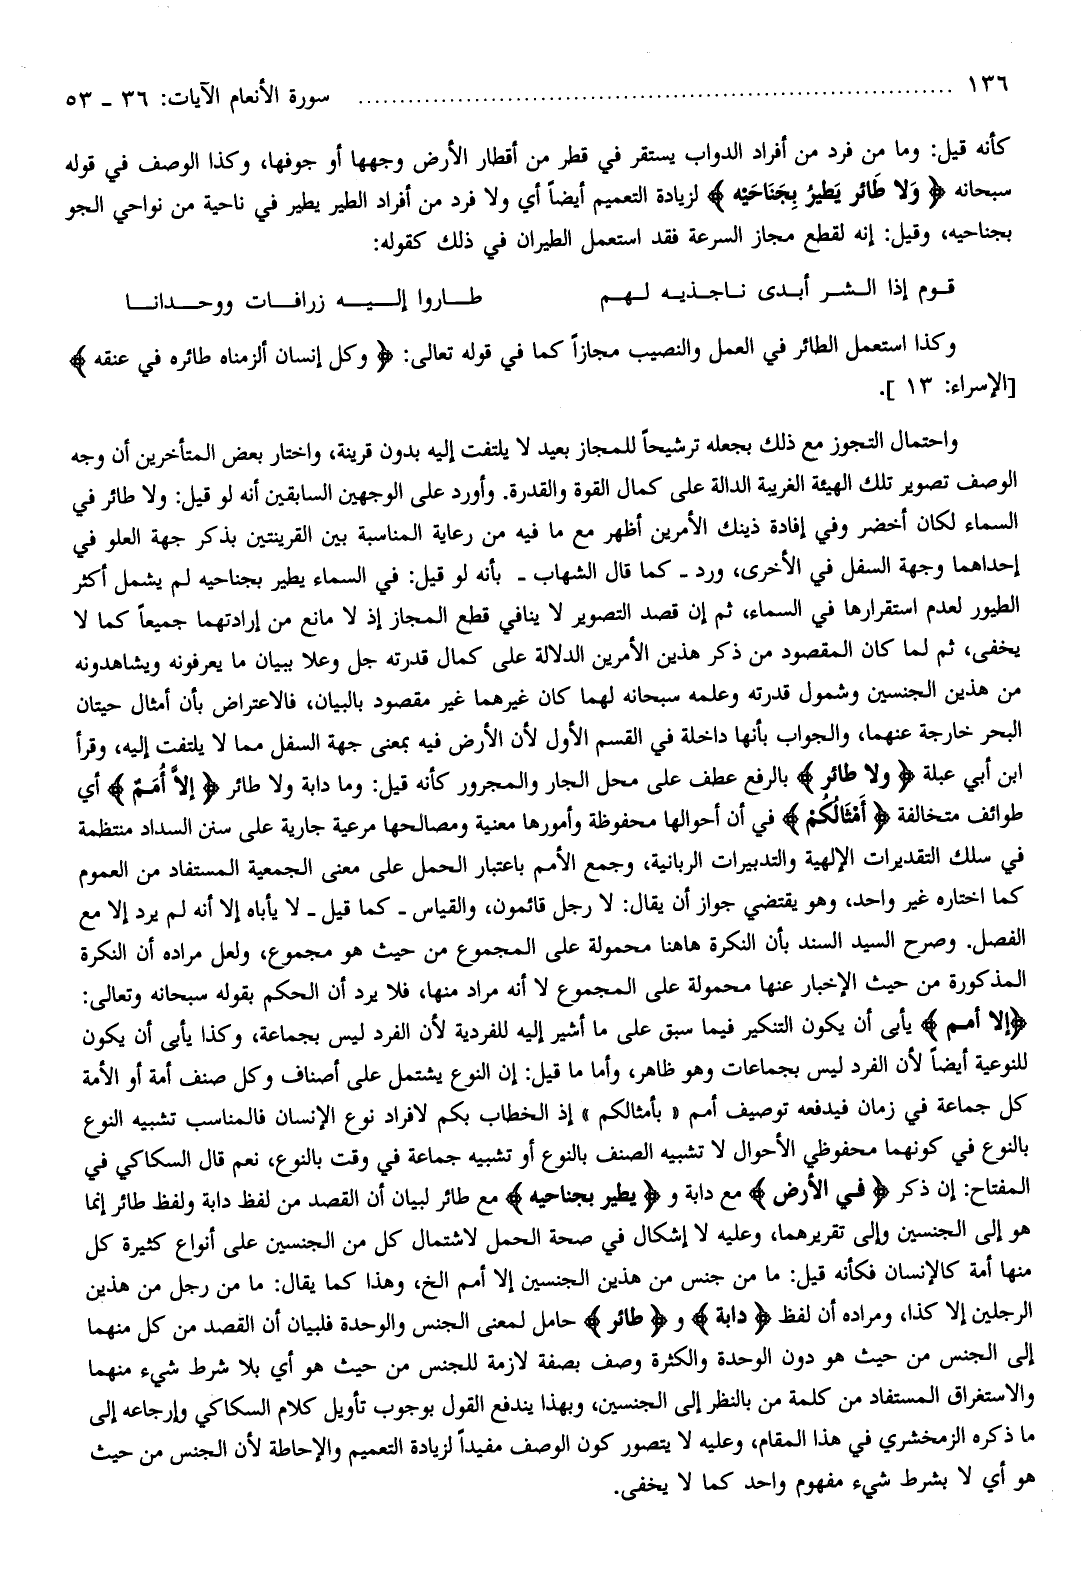 ١٣٦ ........................................ سورة الأنعام الآيات: ٣٦ ـ ٥٣
كأنه قيل: وما من فرد من أفراد الدواب يستقر في قطر من أقطار الأرض وجهها أو جوفها، وكذا الوصف في قوله
سبحانه ﴿ وَلا طَائر يَطيرُ بِجَنَاحَيْه ﴾ لزيادة التعميم أيضاً أي ولا فرد من أفراد الطير يطير في ناحية من نواحي الجو
بجناحيه، وقيل: إنه لقطع مجاز السرعة فقد استعمل الطيران في ذلك كقوله:
قوم إذا الشر أبدى ناجذيه لهم طاروا إليه زرافات ووحدانا
وكذا استعمل الطائر في العمل والنصيب مجازاً كما في قوله تعالى: ﴿ وكل إنسان ألزمناه طائره في عنقه ﴾
[الإسراء: ١٣ ].
واحتمال التجوز مع ذلك بجعله ترشيحاً للمجاز بعيد لا يلتفت إليه بدون قرينة، واختار بعض المتأخرين أن وجه
الوصف تصوير تلك الهيئة الغريبة الدالة على كمال القوة والقدرة. وأورد على الوجهين السابقين أنه لو قيل: ولا طائر في
السماء لكان أخضر وفي إفادة ذينك الأمرين أظهر مع ما فيه من رعاية المناسبة بين القرينتين بذكر جهة العلو في
إحداهما وجهة السفل في الأخرى، ورد ـ كما قال الشهاب ـ بأنه لو قيل: في السماء يطير بجناحيه لم يشمل أكثر
الطيور لعدم استقرارها في السماء، ثم إن قصد التصوير لا ينافي قطع المجاز إذ لا مانع من إرادتهما جميعاً كما لا
يخفى، ثم لما كان المقصود من ذكر هذين الأمرين الدلالة على كمال قدرته جل وعلا ببيان ما يعرفونه ويشاهدونه
من هذين الجنسين وشمول قدرته وعلمه سبحانه لهما كان غيرهما غير مقصود بالبيان، فالاعتراض بأن أمثال حيتان
البحر خارجة عنهما، والجواب بأنها داخلة في القسم الأول لأن الأرض فيه بمعنى جهة السفل مما لا يلتفت إليه، وقرأ
ابن أبي عبلة ﴿ ولا طائر ﴾ بالرفع عطف على محل الجار والمجرور كأنه قيل: وما دابة ولا طائر ﴿ إلاَّ أُمَمٌ ﴾ أي
طوائف متخالفة ﴿ أَمْثَالُكُمْ ﴾ في أن أحوالها محفوظة وأمورها معنية ومصالحها مرعية جارية على سنن السداد منتظمة
في سلك التقديرات الإلهية والتدبيرات الربانية، وجمع الأمم باعتبار الحمل على معنى الجمعية المستفاد من العموم
كما اختاره غير واحد، وهو يقتضي جواز أن يقال: لا رجل قائمون، والقياس ـ كما قيل ـ لا يأباه إلا أنه لم يرد إلا مع
الفصل. وصرح السيد السند بأن النكرة هاهنا محمولة على المجموع من حيث هو مجموع، ولعل مراده أن النكرة
المذكورة من حيث الإخبار عنها محمولة على المجموع لا أنه مراد منها، فلا يرد أن الحكم بقوله سبحانه وتعالى:
﴿إلا أمم ﴾ يأبى أن يكون التنكير فيما سبق على ما أشير إليه للفردية لأن الفرد ليس بجماعة، وكذا يأبى أن يكون
للنوعية أيضاً لأن الفرد ليس بجماعات وهو ظاهر، وأما ما قيل: إن النوع يشتمل على أصناف وكل صنف أمة أو الأمة
كل جماعة في زمان فيدفعه توصيف أمم « بأمثالكم » إذ الخطاب بكم لافراد نوع الإنسان فالمناسب تشبيه النوع
بالنوع في كونهما محفوظي الأحوال لا تشبيه الصنف بالنوع أو تشبيه جماعة في وقت بالنوع، نعم قال السكاكي في
المفتاح: إن ذكر ﴿ في الأرض ﴾ مع دابة و ﴿ يطير بجناحيه ﴾ مع طائر لبيان أن القصد من لفظ دابة ولفظ طائر إنما
هو إلى الجنسين وإلى تقريرهما، وعليه لا إشكال في صحة الحمل لاشتمال كل من الجنسين على أنواع كثيرة كل
منها أمة كالإنسان فكأنه قيل: ما من جنس من هذين الجنسين إلا أمم الخ، وهذا كما يقال: ما من رجل من هذين
الرجلين إلا كذا، ومراده أن لفظ ﴿ دابة ﴾ و ﴿ طائر ﴾ حامل لمعنى الجنس والوحدة فلبيان أن القصد من كل منهما
إلى الجنس من حيث هو دون الوحدة والكثرة وصف بصفة لازمة للجنس من حيث هو أي بلا شرط شيء منهما
والاستغراق المستفاد من كلمة من بالنظر إلى الجنسين، وبهذا يندفع القول بوجوب تأويل كلام السكاكي وإرجاعه إلى
ما ذكره الزمخشري في هذا المقام، وعليه لا يتصور كون الوصف مفيداً لزيادة التعميم والإحاطة لأن الجنس من حيث
هو أي لا بشرط شيء مفهوم واحد كما لا يخفى.